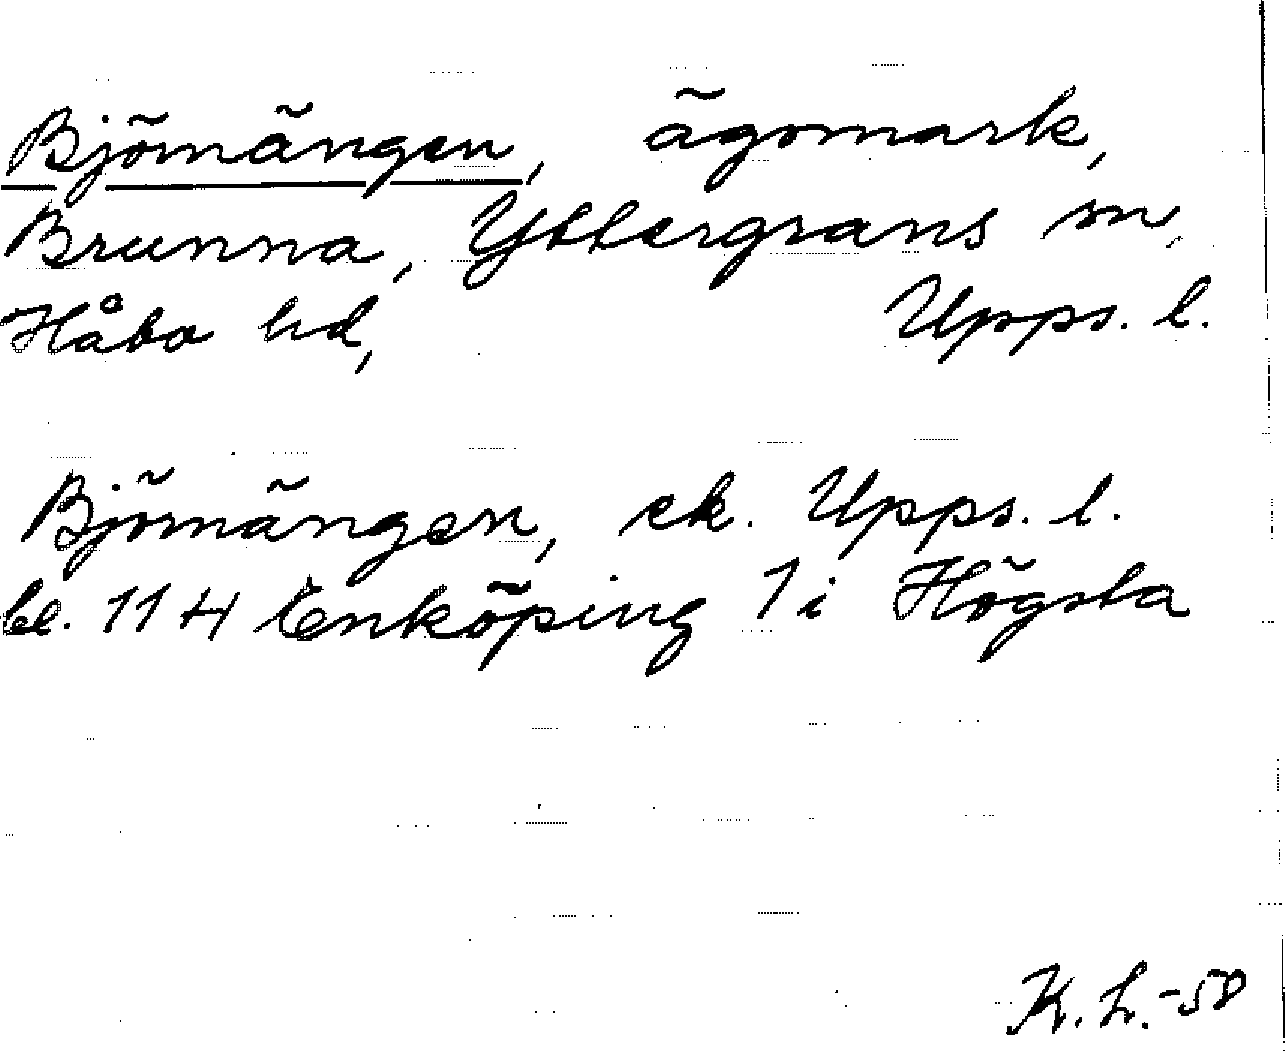 Björnängen, ägomark,
Brunna, Yttergrans sn,
Håbo hd, Upps. l.
Björnängen, ek. Upps. l.
bl. 114 Enköping 1 i Högsta
K. L. -58